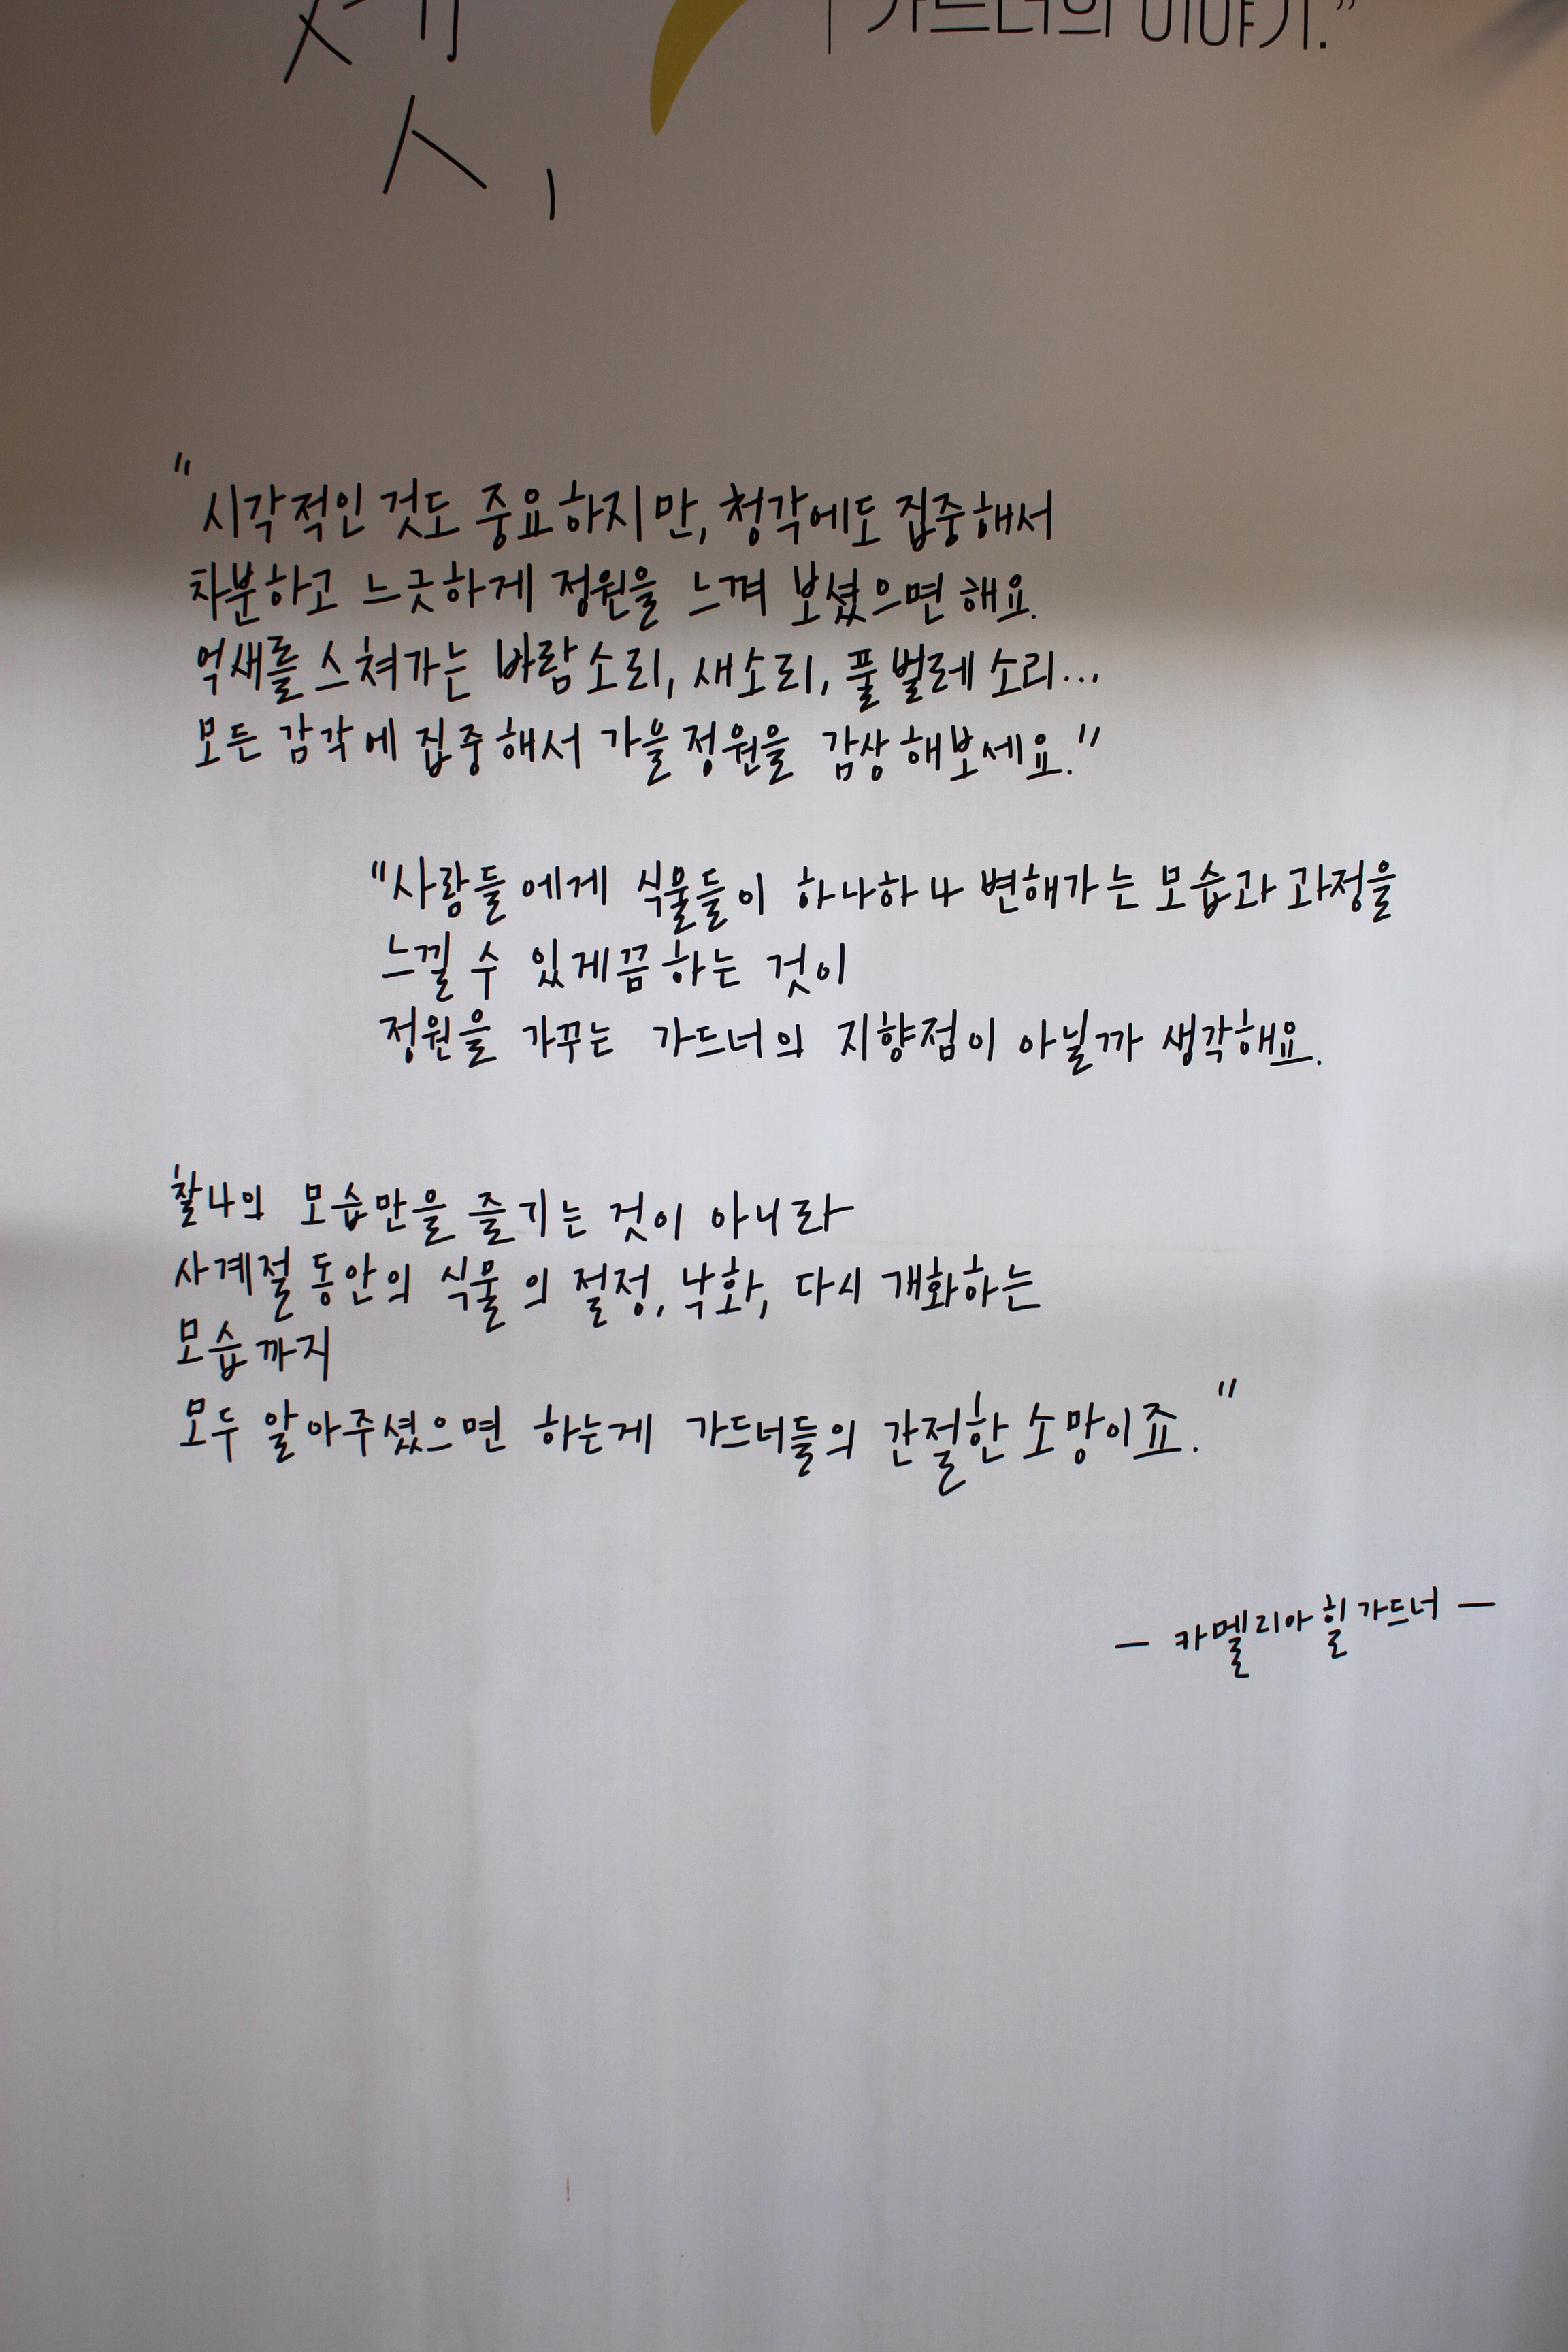 가드너의 이야기.”
"시각적인 것도 중요하지만, 청각에도 집중해서
차분하고 느긋하게 정원을 느껴 보셨으면 해요.
억새를 스쳐가는 바람소리, 새소리, 풀벌레 소리...
모든 감각에 집중해서 가을정원을 감상해보세요."
"사람들에게 식물들이 하나하나 변해가는 모습과 과정을
느낄 수 있게끔 하는 것이
정원을 가꾸는 가드너의 지향점이 아닐까 생각해요.
찰나의 모습만을 즐기는 것이 아니라
사계절 동안의 식물의 절정, 낙화, 다시 개화하는
모습까지
모두 알아주셨으면 하는게 가드너들의 간절한 소망이죠."
— 카멜리아힐 가드너 —